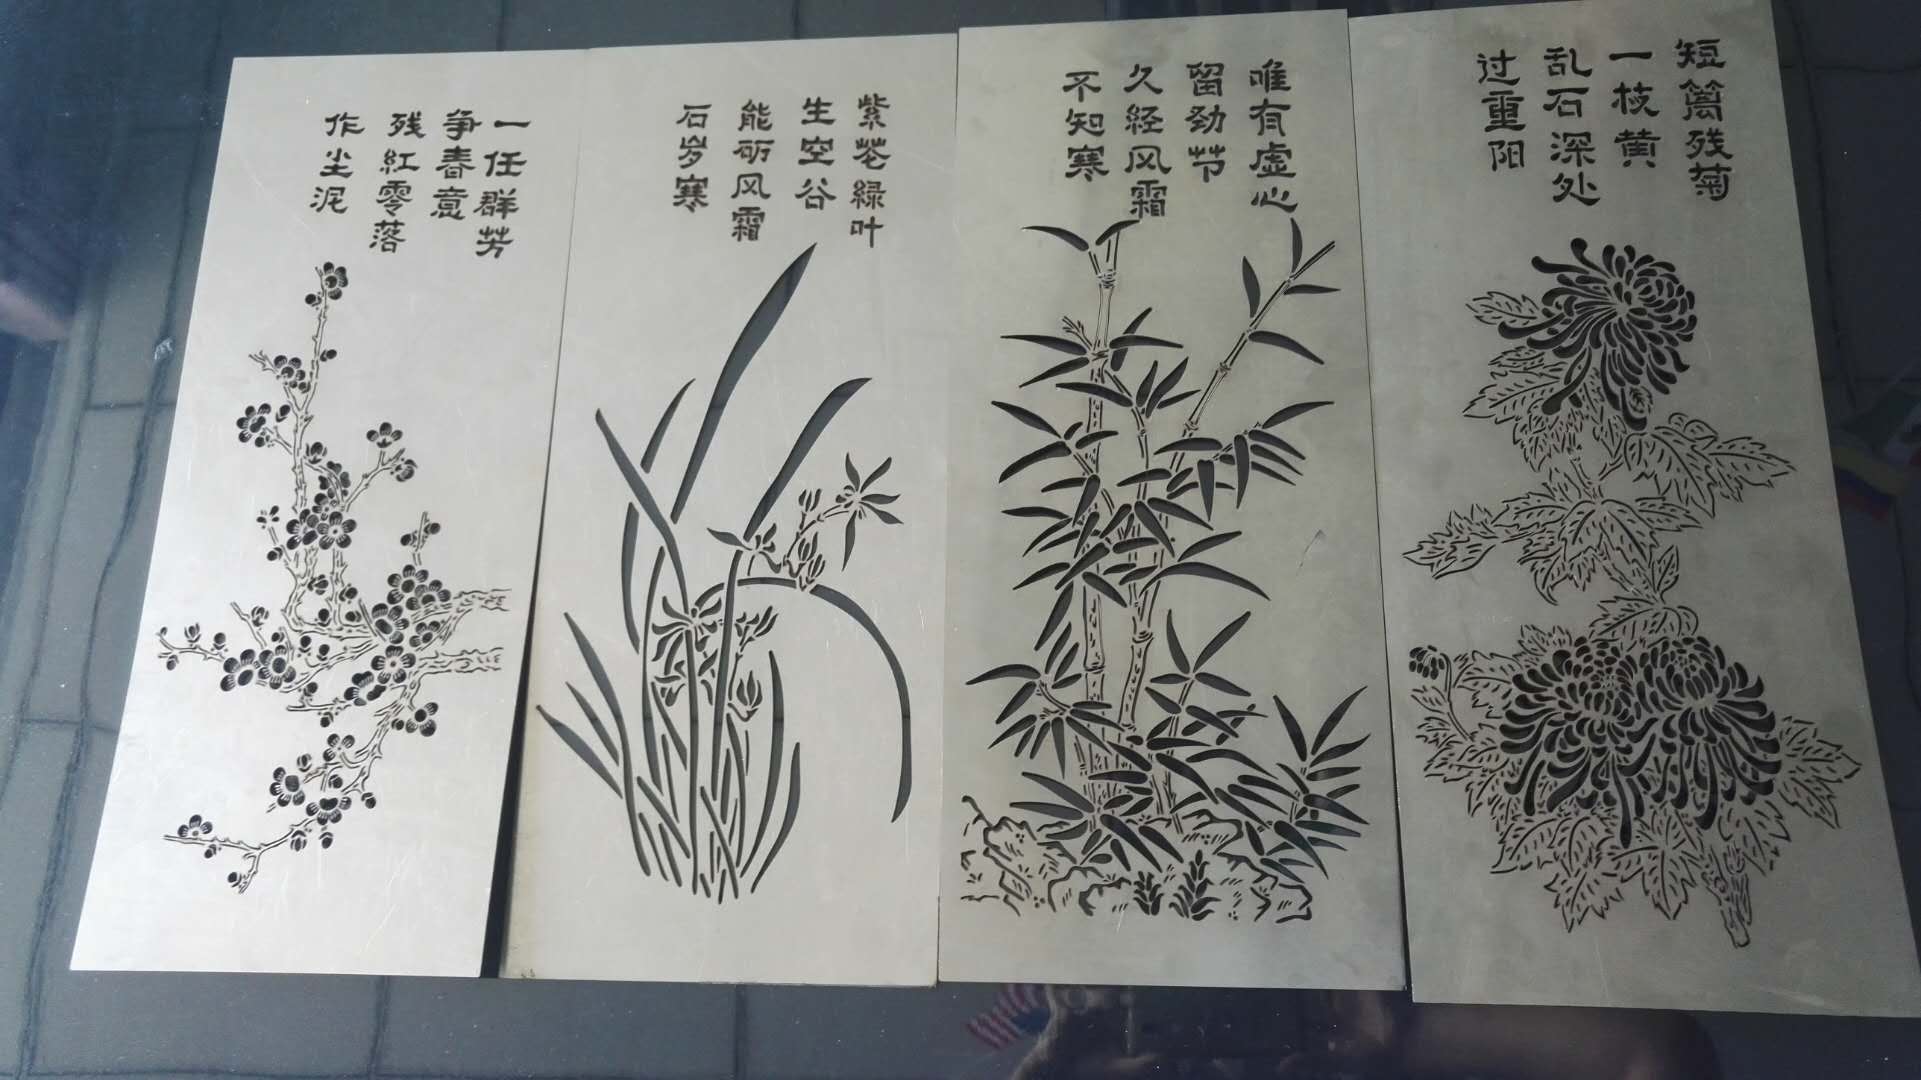 一任群芳
争春意
残紅零落
作尘泥
紫花緑叶
生空谷
能砺风霜
石岁寒
唯有虚心
留劲节
久经风霜
不知寒
短篱残菊
一枝黄
乱石深处
过重阳